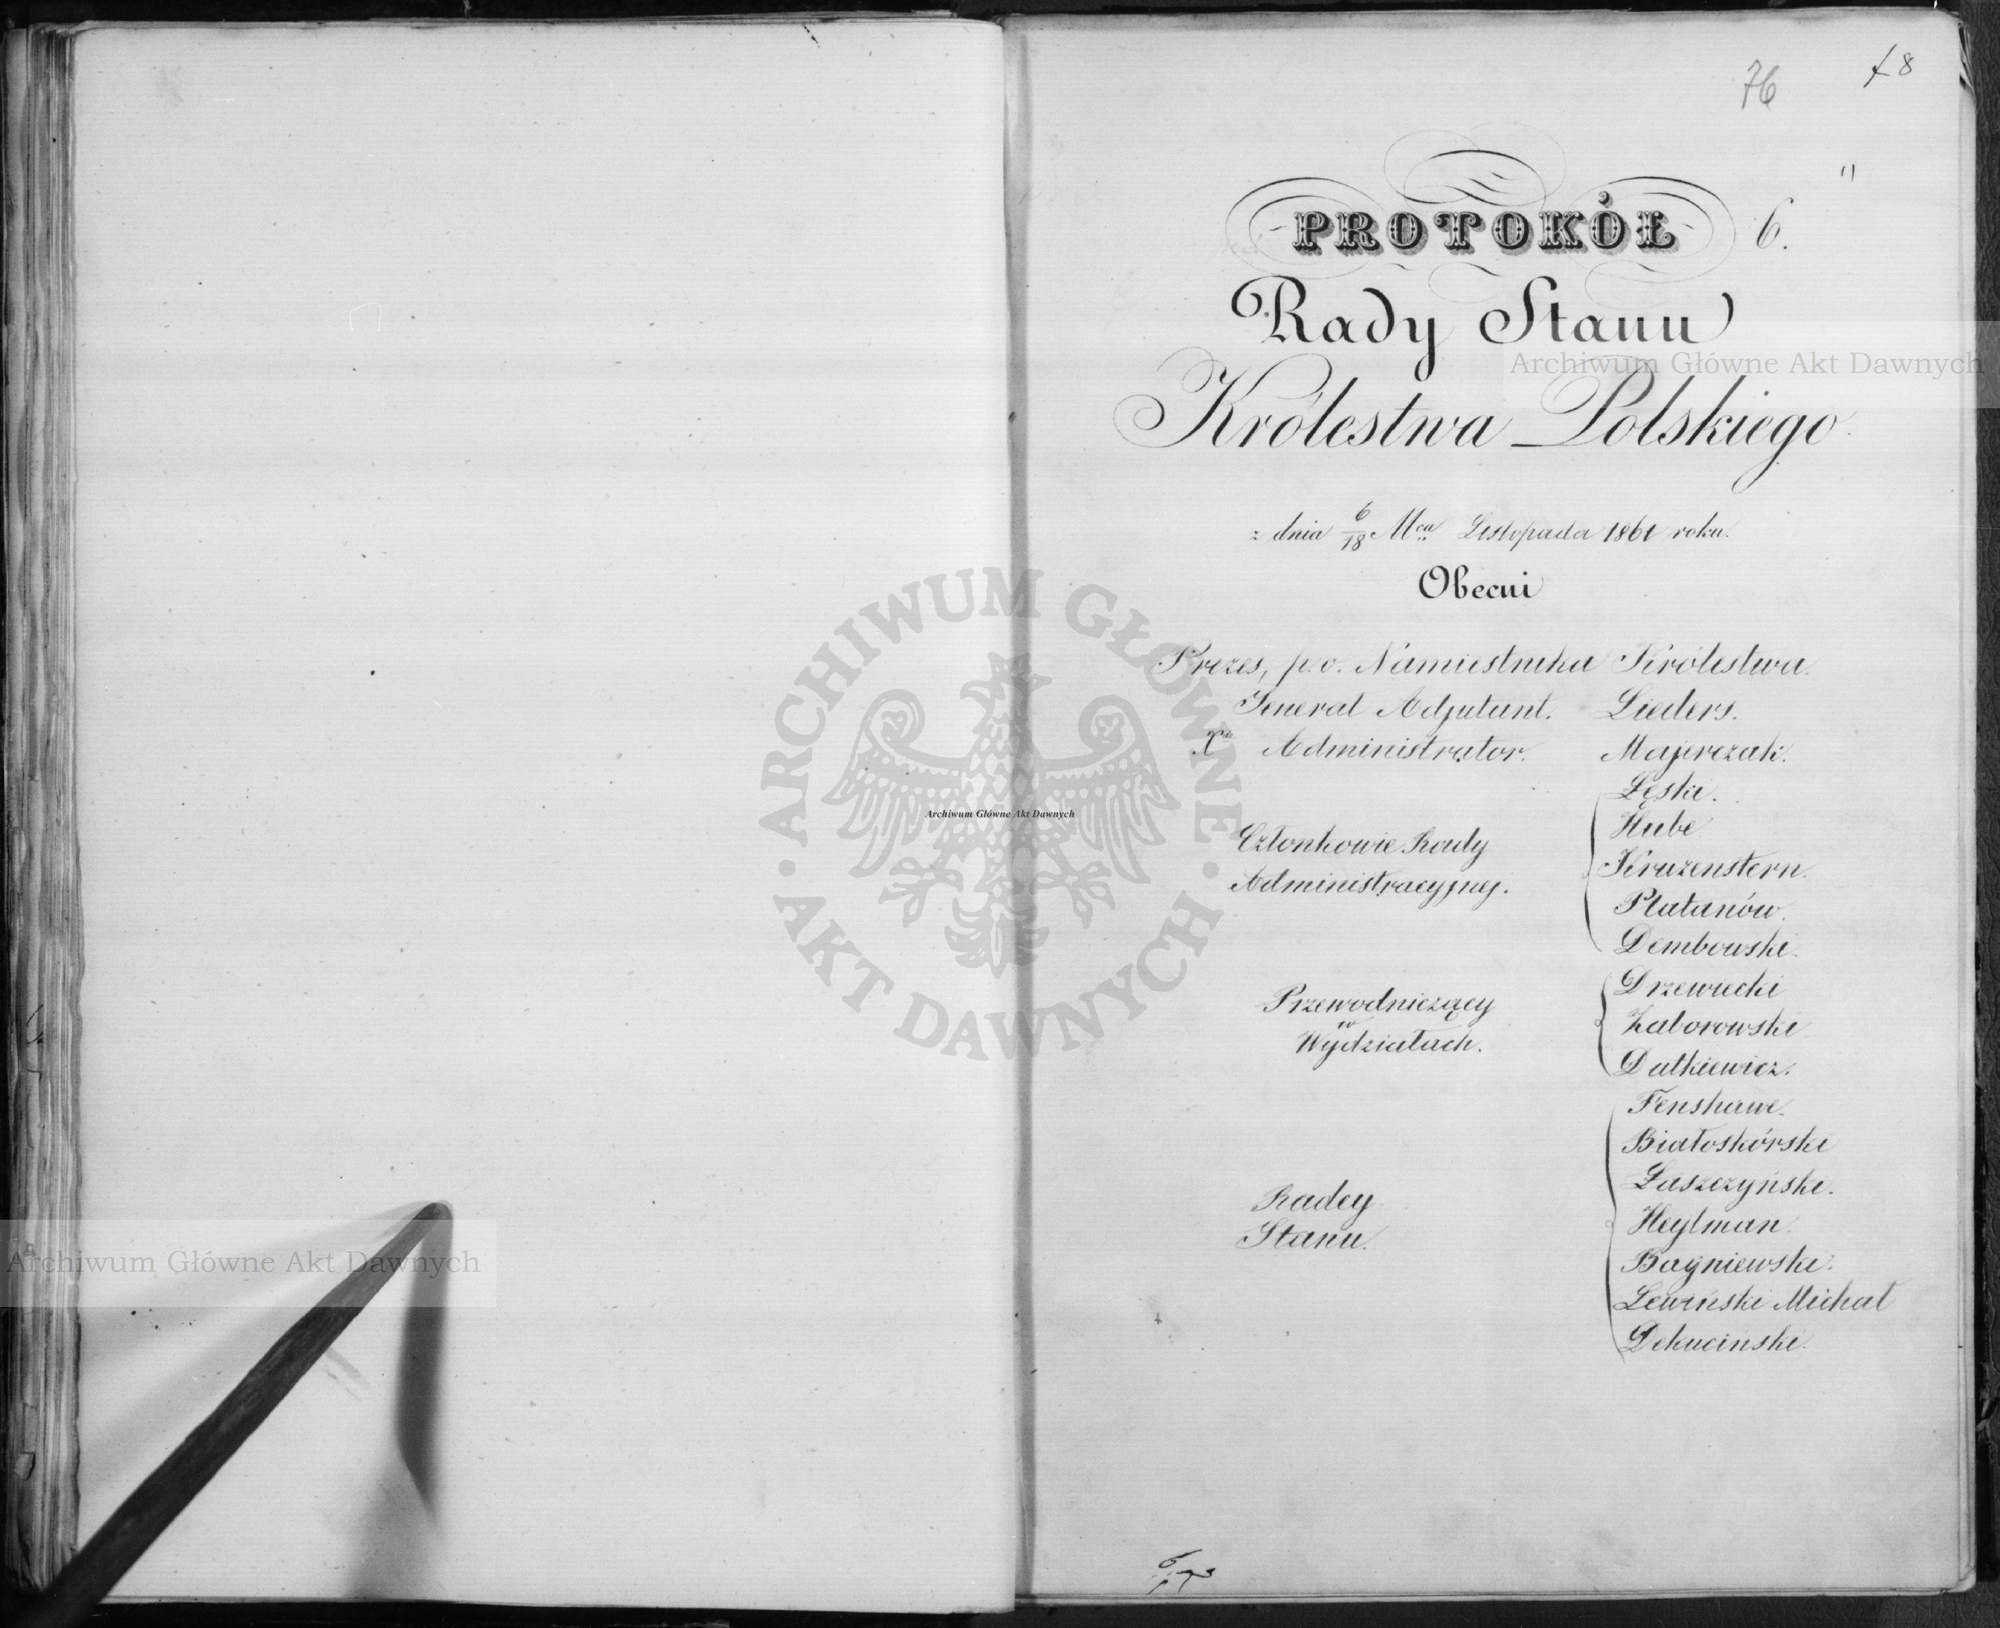 76
78
"
PROTOKÓŁ 6.
Rady Stanu
Królestwa Polskiego.
z dnia 6/18 Mca Listopada 1861 roku.
Obecni
Prezes, p.o. Namiestnika Królestwa.
Jenerał Adjutant. Lieders.
Xdz Administrator. Majerczak.
Członkowie Rady
Administracyjnej.
Łęski.
Hube
Kruzenstern.
Płatanów.
Dembowski.
Przewodniczący
w
Wydziałach.
Drzewiecki
Zaborowski
Dutkiewicz.
Radcy
Stanu.
Fenshawe.
Białoskórski
Łaszczyński.
Heylman.
Bagniewski.
Lewiński Michał
Dekuciński.
Archiwum Główne Akt Dawnych
ARCHIWUM GŁÓWNE AKT DAWNYCH
Archiwum Główne Akt Dawnych
Archiwum Główne Akt Dawnych